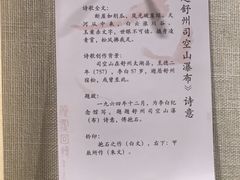 题舒州司空山瀑布》诗意
诗歌全文:
断崖如削瓜,岚光破崖绿。天
河从中来,白云涨川谷。
玉案赤文字,世眼不可读。摄身凌
青霄,松风拂我足。
诗歌创作背景:
司空山在舒州太湖县,至德二
年(757),李白57岁,避居舒州宿
松,或登至此。
题跋:
一九六四年十二月,为李白纪
念馆写,题舒州司空山瀑
布》诗意,傅抱石。
钤印:
抱石之作(白文),右下:甲
辰所作(朱文)。